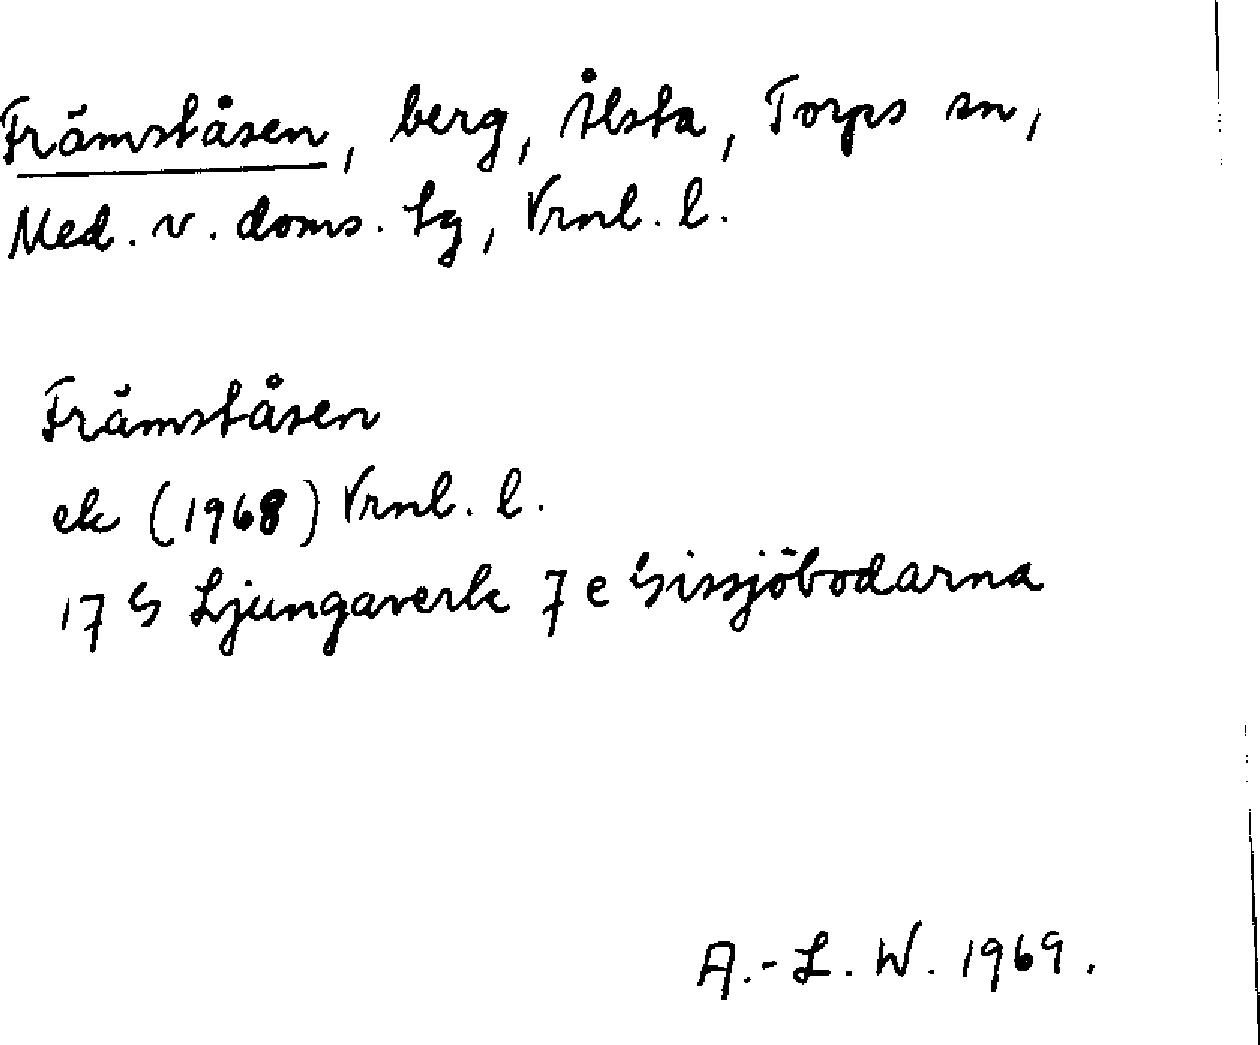 Främståsen, berg, Ålsta, Torps sn,
Med. v. doms. tg, Vrnl. l.
Främståsen
ek (1968) Vrnl. l.
17 G Ljungaverk 7 e Gissjöbodarna
A.-L. W. 1969.